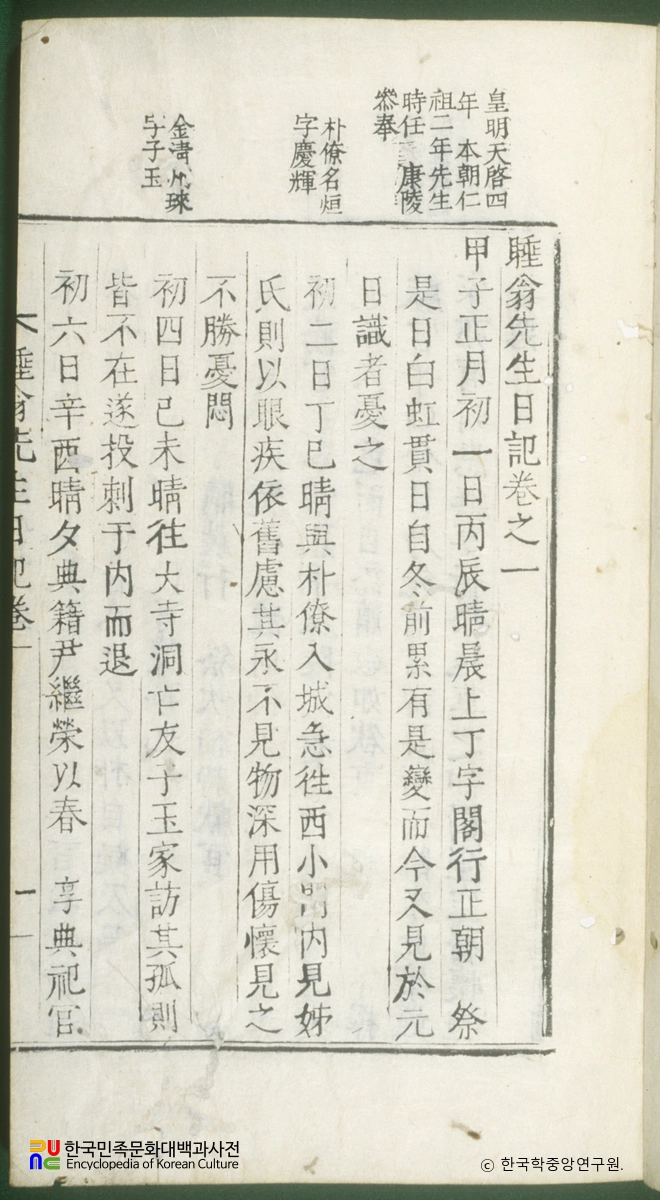 皇明天啓四
年 本朝仁
祖二年先生
時任 康陵
叅奉
朴僚名烜
字慶輝
金淸 琜
字子玉
睡翁先生日記卷之一
甲子正月初一日丙辰晴晨上丁字閣行正朝 祭
是日白虹貫日自冬前累有是變而今又見於元
日識者憂之
初二日丁巳晴與朴僚入城急徃西小門內見姊
氏則以眼疾依舊慮其永不見物深用傷懷見之
不勝憂悶
初四日己未晴徃大寺洞亡友子玉家訪其孤則
皆不在遂投刺于內而退
初六日辛酉晴夕典籍尹繼榮以春 享典祀官
睡翁先生日記卷一
一
한국민족문화대백과사전
Encyclopedia of Korean Culture
© 한국학중앙연구원.